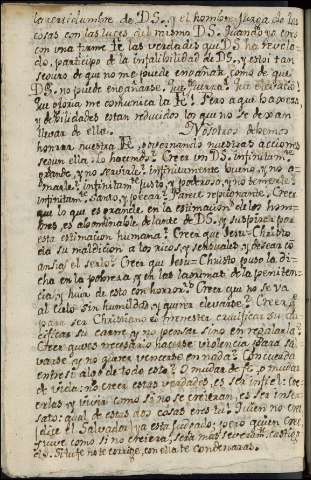 la certidumbre de DS. y el hombre juzga de las
cosas con las luces del mismo DS. Quando yo creo
con una firme Fè las verdades que DS ha revela-
do, participo de la infalibilidad de DS, y estoi tan
seguro de que no me puede engañar, como de que
DS. no puede engañarse. Que Que elevacio!
Que gloria me comunica la Fè! Pero a que baxeza,
y debilidades estan reducidos los que no se dexan
llevar de ella. Nosotros debemos
honrar nuestra Fè, governando nuestras acciones
segun ella. Lo hacemos? Creer un DS. infinitam.te
grande, y no servirle? infinitamente bueno, y no a-
marle? infinitam.te justo, y poderoso, y no temerle?
infinitam. Santo, y pecar? Parece Creer
que lo que es grande en la estimacion de los hom-
bres, es abominable delante de DS. y suspirar por
esta estimacion humana? Creer que Jesu-Christo
dio su maldicion a los ricos, y sensuales y desear co
ansia el serlo? Creer que Jesu-Christo puso la di-
cha en la pobreza, y en las lagrimas de la peniten-
cia, y huir de esto con horror? Creer que no se va
al Cielo sin humildad, y querer elevarse? Creer q.
para ser Christiano es menester crucificar su
ficar su carne, y no pensar sino en regalarla?
Creer que es necesario hacerse violencia para sal-
varse, y no querer vencerse en nada? Concuerda
entre si algo de todo esto? O mudar de fè, o mudar
de vida: no creer estas verdades, es ser infiel: cre-
erlas, y vivir como si no se creieran, es ser insen-
sato: qual de estas dos cosas eres tu? Quien no cree
(dice el Salvador) ya està juzgado; pero quien cree,
y vive como si no creiera, serà mas severam. castiga-
do. Si tu fè no te corrige, con ella te condenaràs.